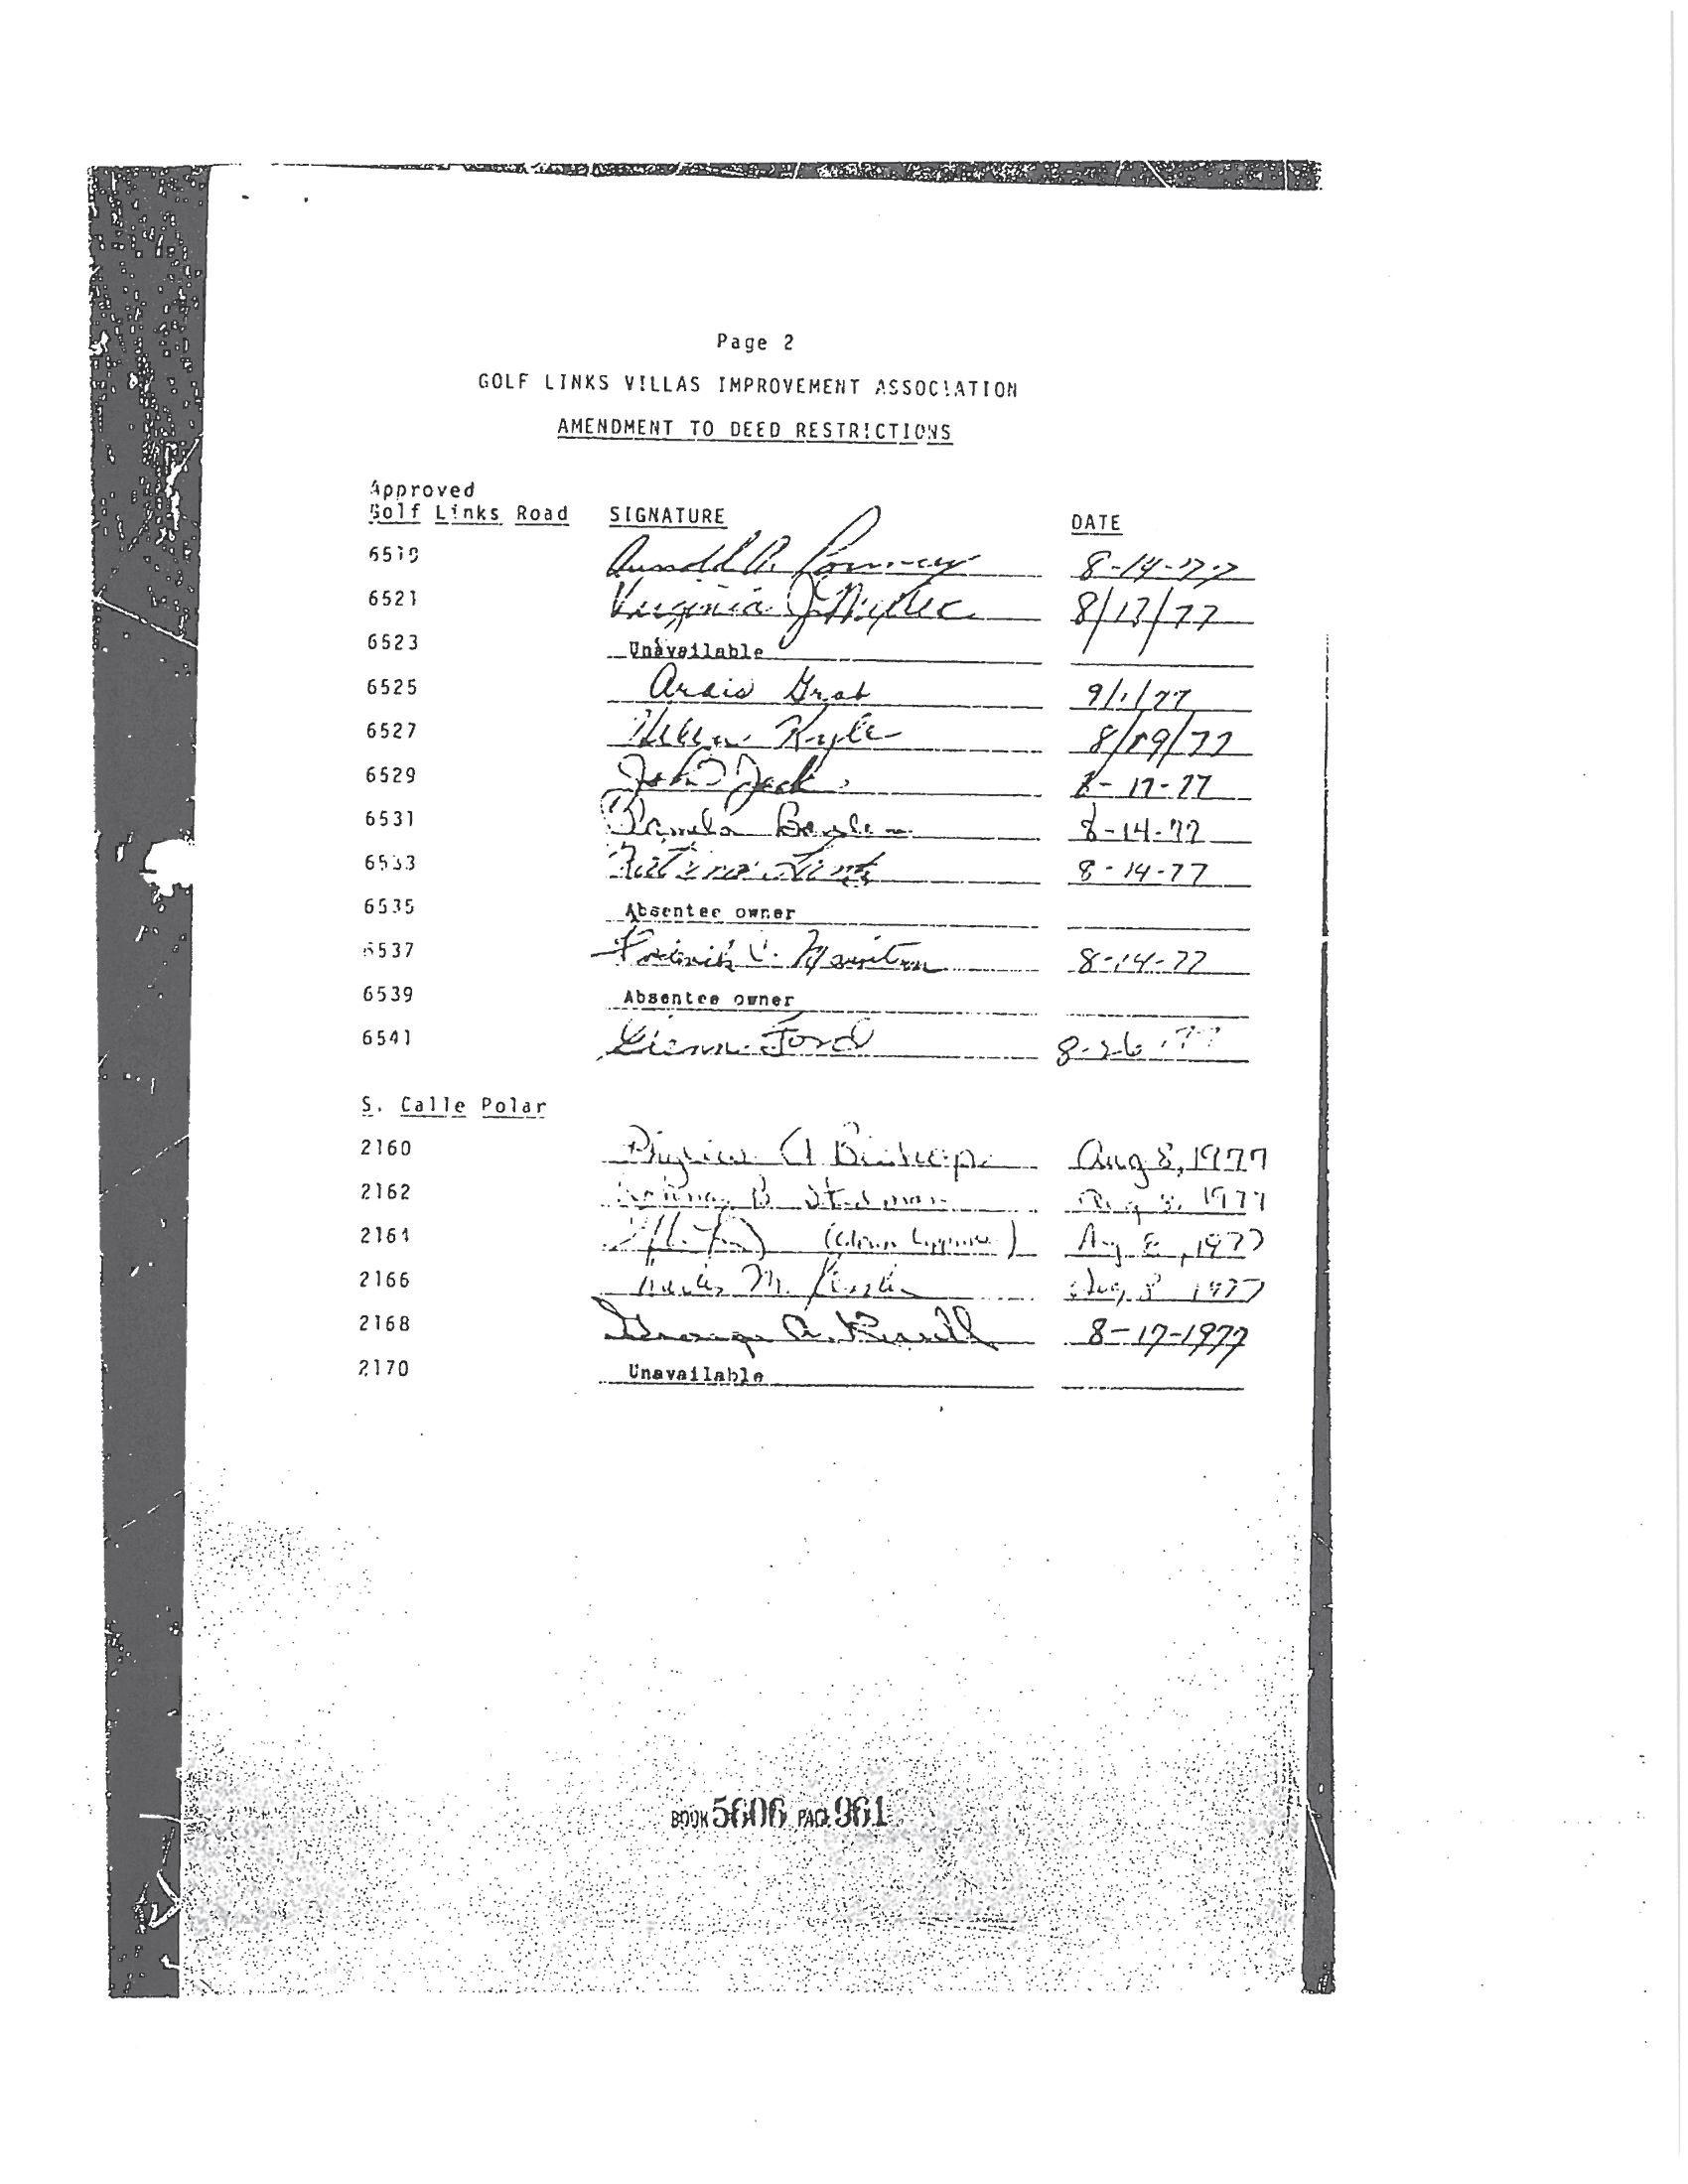 Page 2
GOLF LINKS VILLAS IMPROVEMENT ASSOCIATION
AMENDMENT TO DEED RESTRICTIONS
Approved
Golf Links Road SIGNATURE DATE
6519 Arnold A. 8-14-77
6521 Virginia J. 8/17/77
6523 Unavailable
6525 Ardis Grab 9/1/77
6527 Helen Kyle 8/19/77
6529 John Jack 8-17-77
6531 Pamela 8-14-77
6533 8-14-77
6535 Absentee owner
6537 8-14-77
6539 Absentee owner
6541 Glenn Ford 8-26 77
S. Calle Polar
2160 A Aug 8, 1977
2162 B 1977
2164 Aug 8, 1977
2166 M. Aug 8 1977
2168 George A. 8-17-1977
2170 Unavailable
BOOK 5606 PAGE 961